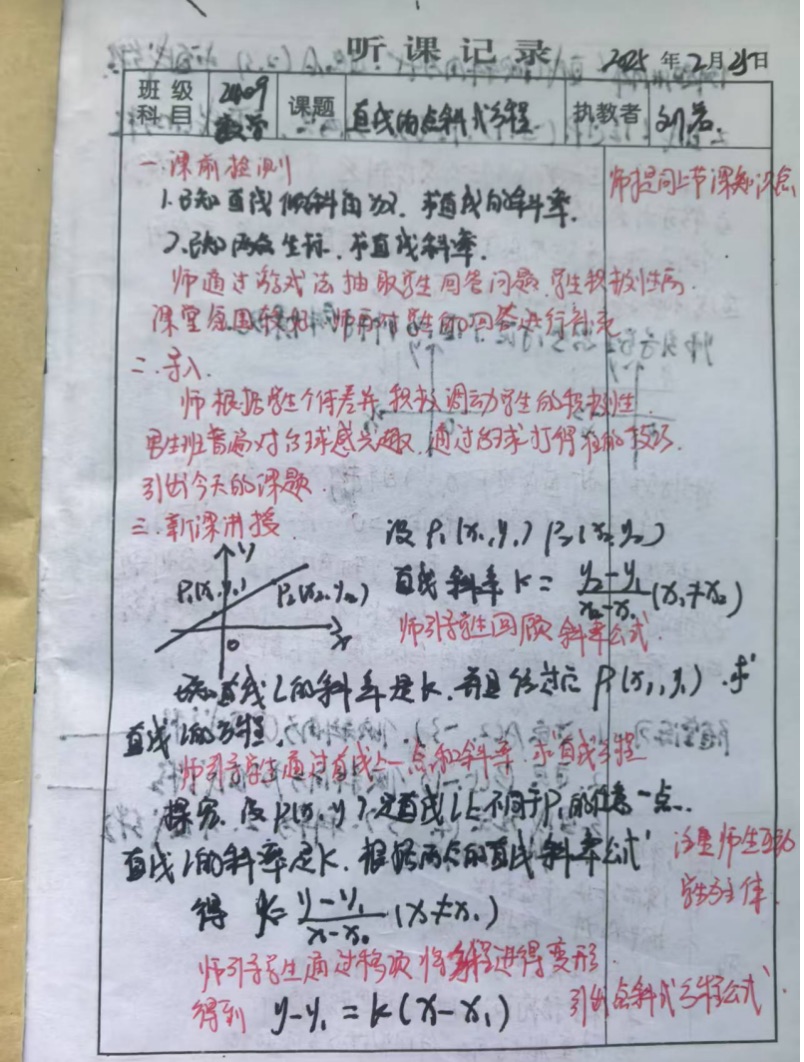 听课记录 2025年2月25日
班级科目 2409数学 课题 直线的点斜式方程 执教者 刘
一.课前检测
师提问上节课知识点
1.已知直线倾斜角为α.求直线的斜率.
2.已知两点坐标.求直线斜率.
师通过游戏法抽取学生回答问题.学生积极性高
课堂氛围较好.师再对学生的回答进行补充
二.导入.
师根据学生个体差异积极调动学生的积极性.
男生班普遍对台球感兴趣.通过台球打得准的技巧.
引出今天的课题.
三.新课讲授
设P₁(x₁,y₁) P₂(x₂,y₂)
y
P₁(x₁,y₁) P₂(x₂,y₂)
直线斜率K=(y₂-y₁)/(x₂-x₁)(x₁≠x₂)
0 x
师引导学生回顾斜率公式.
已知直线L的斜率是K.并且经过点P₁(x₁,y₁).求
直线l的方程.
师引导学生通过直线上一点和斜率.求直线方程
探究.设P(x,y)是直线l上不同于P₁的任意一点.
直线l的斜率是K.根据两点的直线斜率公式
注重师生互动
学生为主体.
得 k=(y-y₁)/(x-x₀)(x≠x₁)
师引导学生通过移项将方程进得变形.
得到 y-y₁=k(x-x₁)
引出点斜式方程公式